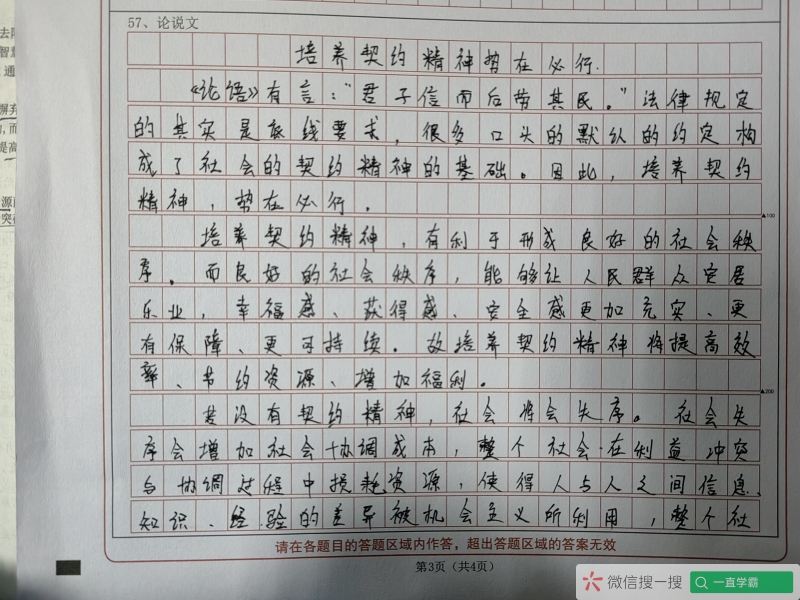 57、论说文
培养契约精神势在必行.
《论语》有言:“君子信而后带其民。”法律规定
的其实是底线要求,很多口头的默认的约定构
成了社会的契约精神的基础。因此,培养契约
精神,势在必行。
▲100
培养契约精神,有利于形成良好的社会秩
序。而良好的社会秩序,能够让人民群众安居
乐业,幸福感、获得感、安全感更加充实、更
有保障、更可持续。故培养契约精神将提高效
率、节约资源、增加福利。
▲200
若没有契约精神,社会将会失序。社会失
序会增加社会协调成本,整个社会在利益冲突
与协调过程中损耗资源,使得人与人之间信息、
知识、经验的差异被机会主义所利用,整个社
请在各题目的答题区域内作答,超出答题区域的答案无效
第3页(共4页)
微信搜一搜
一直学霸